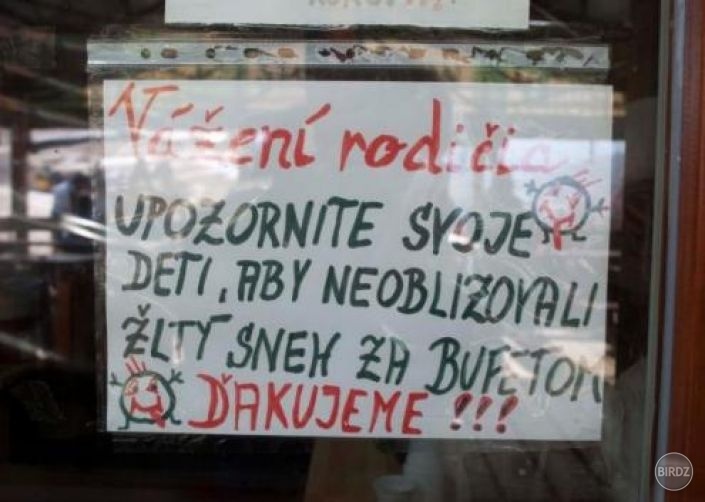 Vážení rodičia
UPOZORNITE SVOJE
DETI, ABY NEOBLIZOVALI
ŽLTÝ SNEH ZA BUFETOM
ĎAKUJEME !!!
BIRDZ